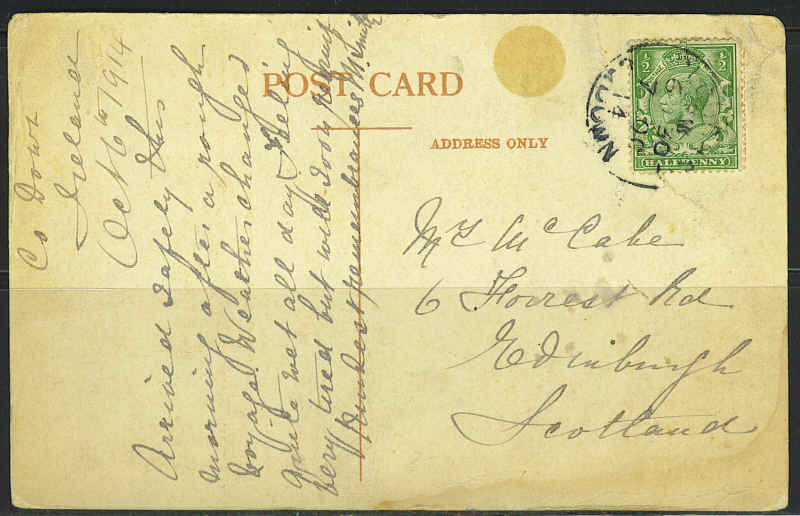 Co Down
Ireland
Oct 6th 1914
Arrived safely this
morning after a rough
voyage. Weather changed
quite wet all day. Feeling
very tired but will soon
Kindest remembrances M. Smith
POST CARD
ADDRESS ONLY
½ ½
HALFPENNY
DOWN
14
Mrs McCabe
6 Forrest Rd
Edinburgh
Scotland